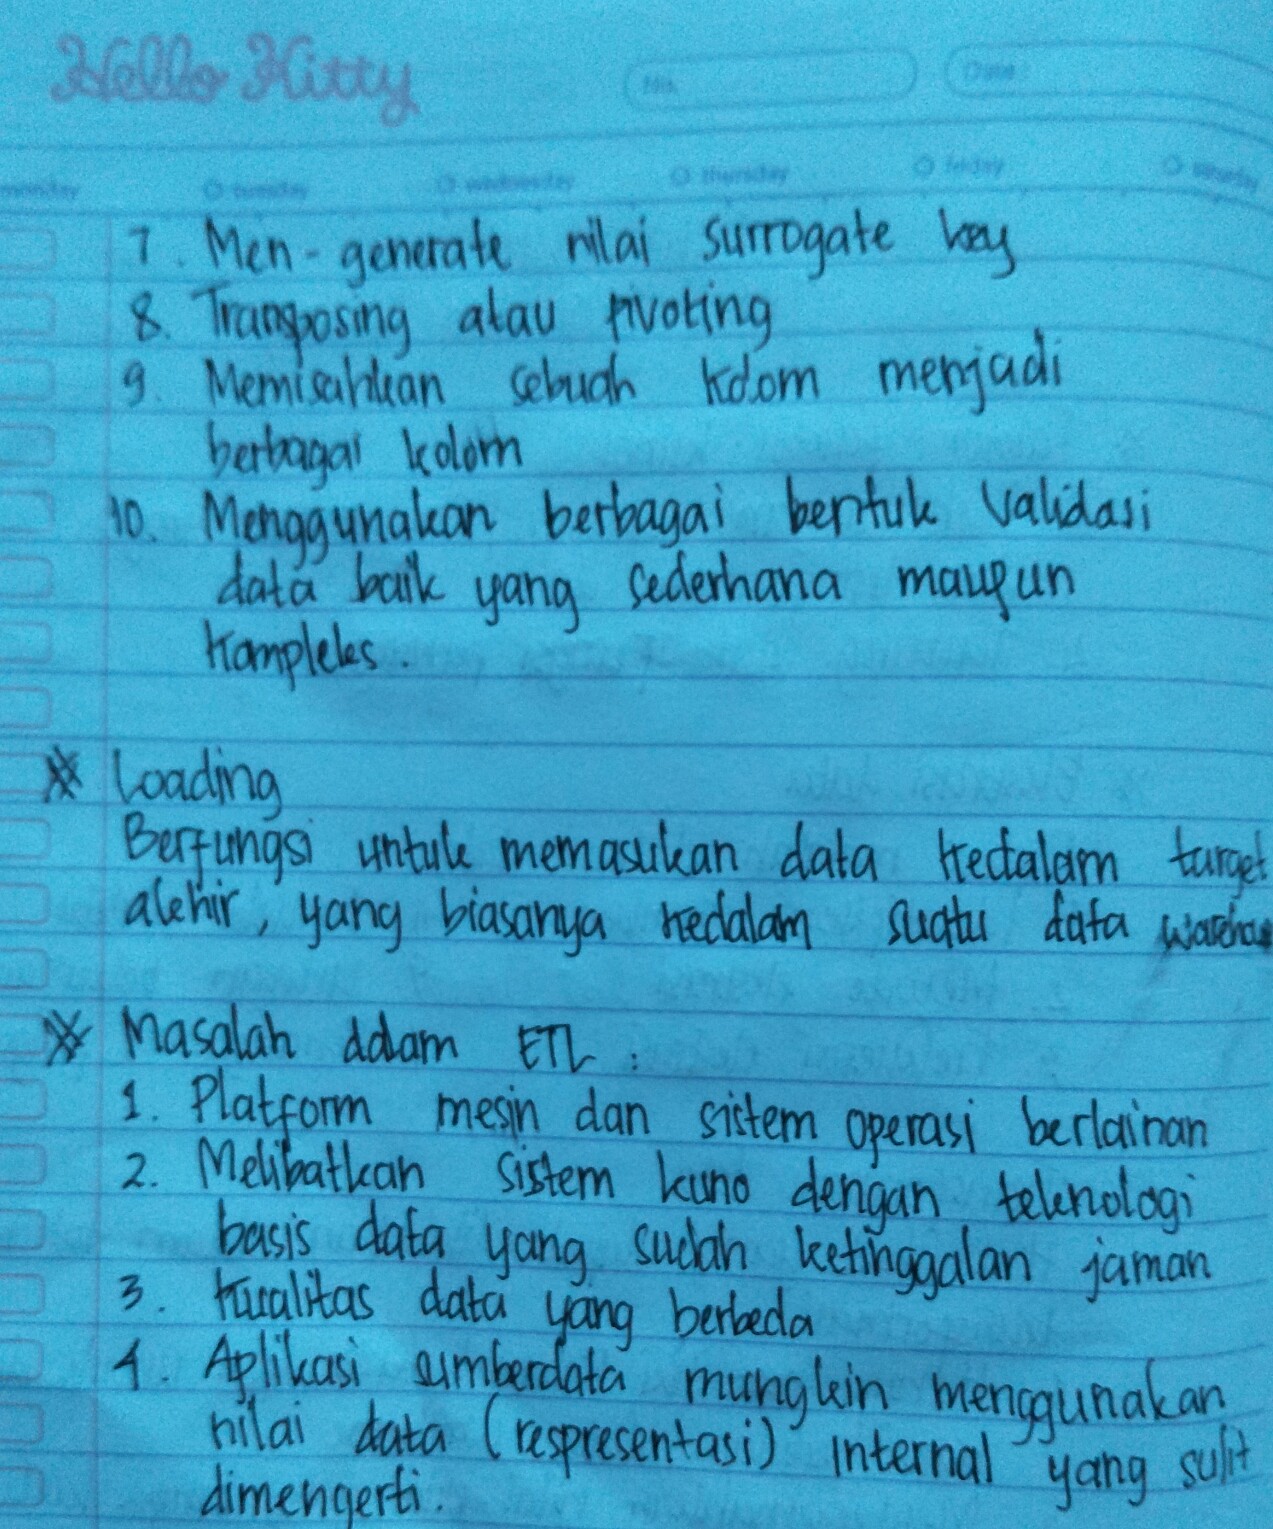 Hello Kitty
No.
Date
monday tuesday wednesday thursday friday saturday
7. Men-generate nilai surrogate key
8. Transposing atau pivoting
9. Memisahkan sebuah kolom menjadi
berbagai kolom
10. Menggunakan berbagai bentuk validasi
data baik yang sederhana maupun
kompleks.
Loading
Berfungsi untuk memasukan data kedalam target
akhir, yang biasanya kedalam suatu data
Masalah dalam ETL :
1. Platform mesin dan sistem operasi berlainan
2. Melibatkan sistem kuno dengan teknologi
basis data yang sudah ketinggalan jaman
3. Kualitas data yang berbeda
4. Aplikasi sumberdata mungkin menggunakan
nilai data (respresentasi) internal yang sulit
dimengerti.